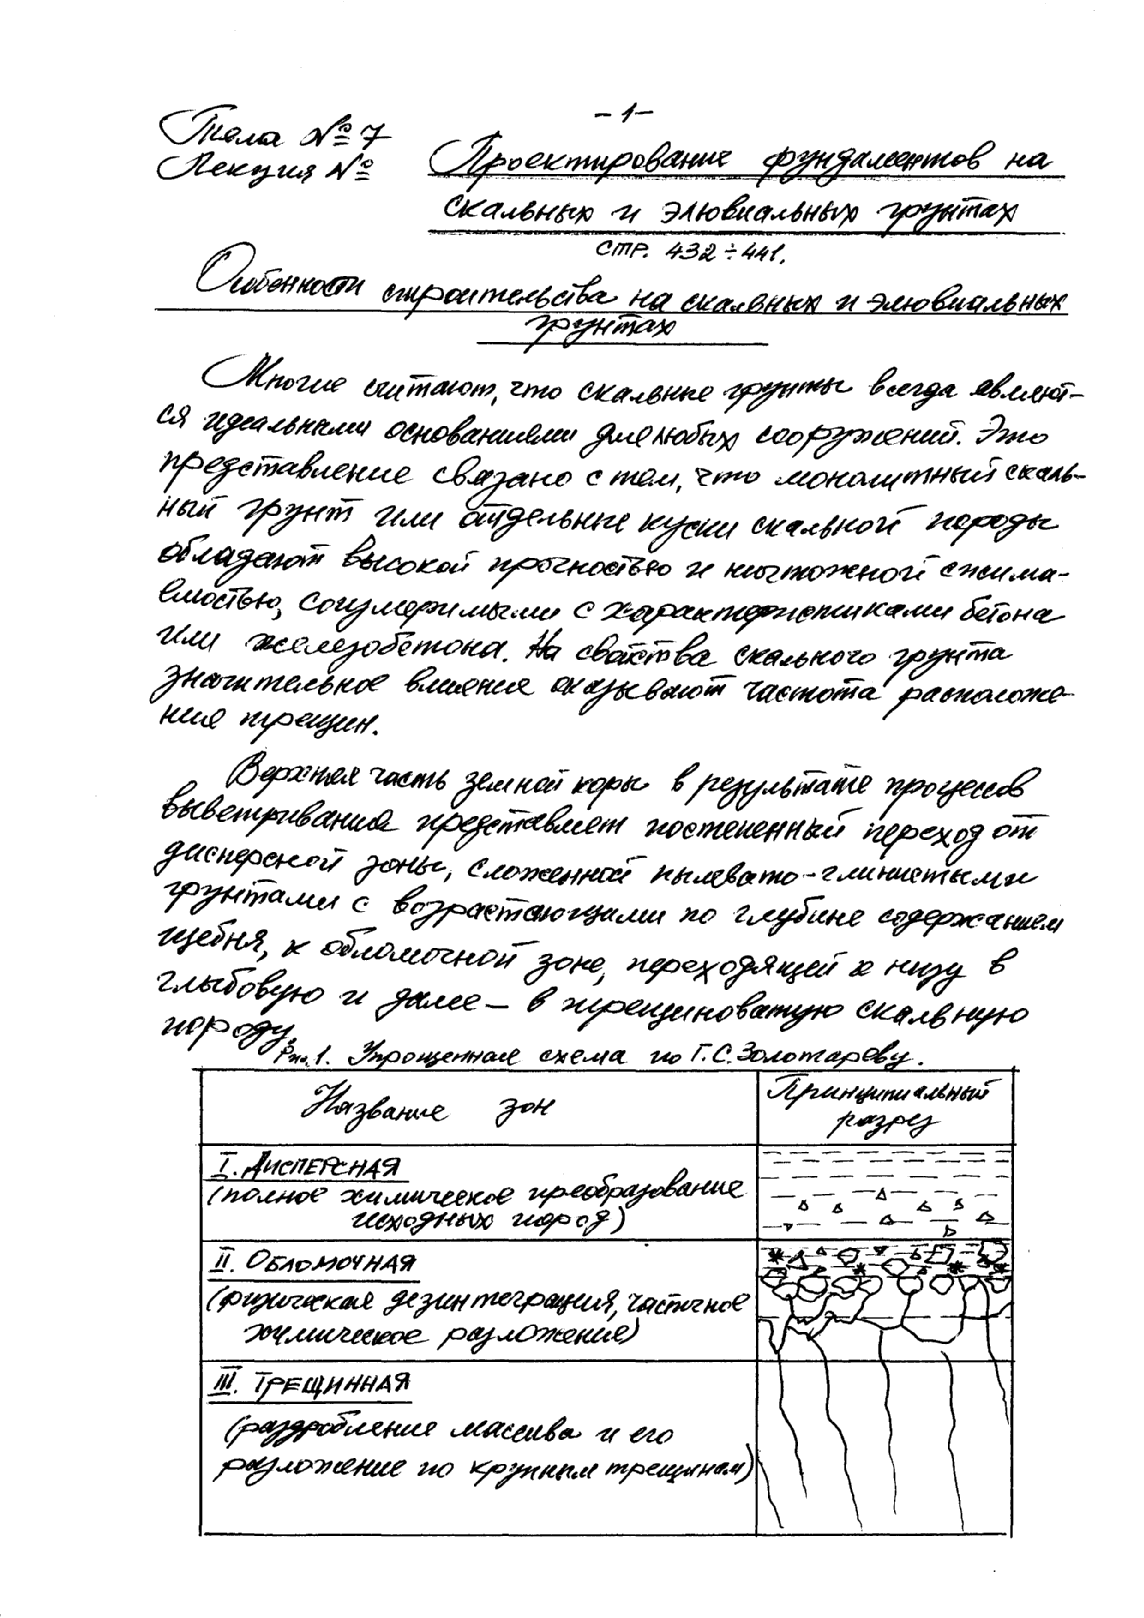 -1-
Тема № 7
Лекция №
Проектирование фундаментов на
скальных и элювиальных грунтах
СТР. 432÷441.
Особенности строительства на скальных и элювиальных
грунтах
Многие считают, что скальные грунты всегда являют-
ся идеальными основаниями для любых сооружений. Это
представление связано с тем, что монолитный скаль-
ный грунт или отдельные куски скальной породы
обладают высокой прочностью и ничтожной сжима-
емостью, соизмеримыми с характеристиками бетона
или железобетона. На свойства скального грунта
значительное влияние оказывают частота расположе-
ния трещин.
Верхняя часть земной коры в результате процессов
выветривания представляет постепенный переход от
дисперсной зоны, сложенной пылевато-глинистыми
грунтами с возрастающими по глубине содержанием
щебня, к обломочной зоне, переходящей к низу в
глыбовую и далее — в трещиноватую скальную
породу.
Рис. 1. Упрощенная схема по Г.С. Золотареву.
Название зон
Принципиальный
разрез
I. ДИСПЕРСНАЯ
(полное химическое преобразование
исходных пород)
II. ОБЛОМОЧНАЯ
(физическая дезинтеграция, частичное
химическое разложение)
III. ТРЕЩИННАЯ
(раздробление массива и его
разложение по крупным трещинам)